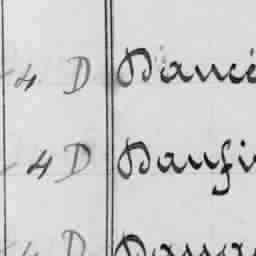 4 D Dancé
4 D Daufi
4 D